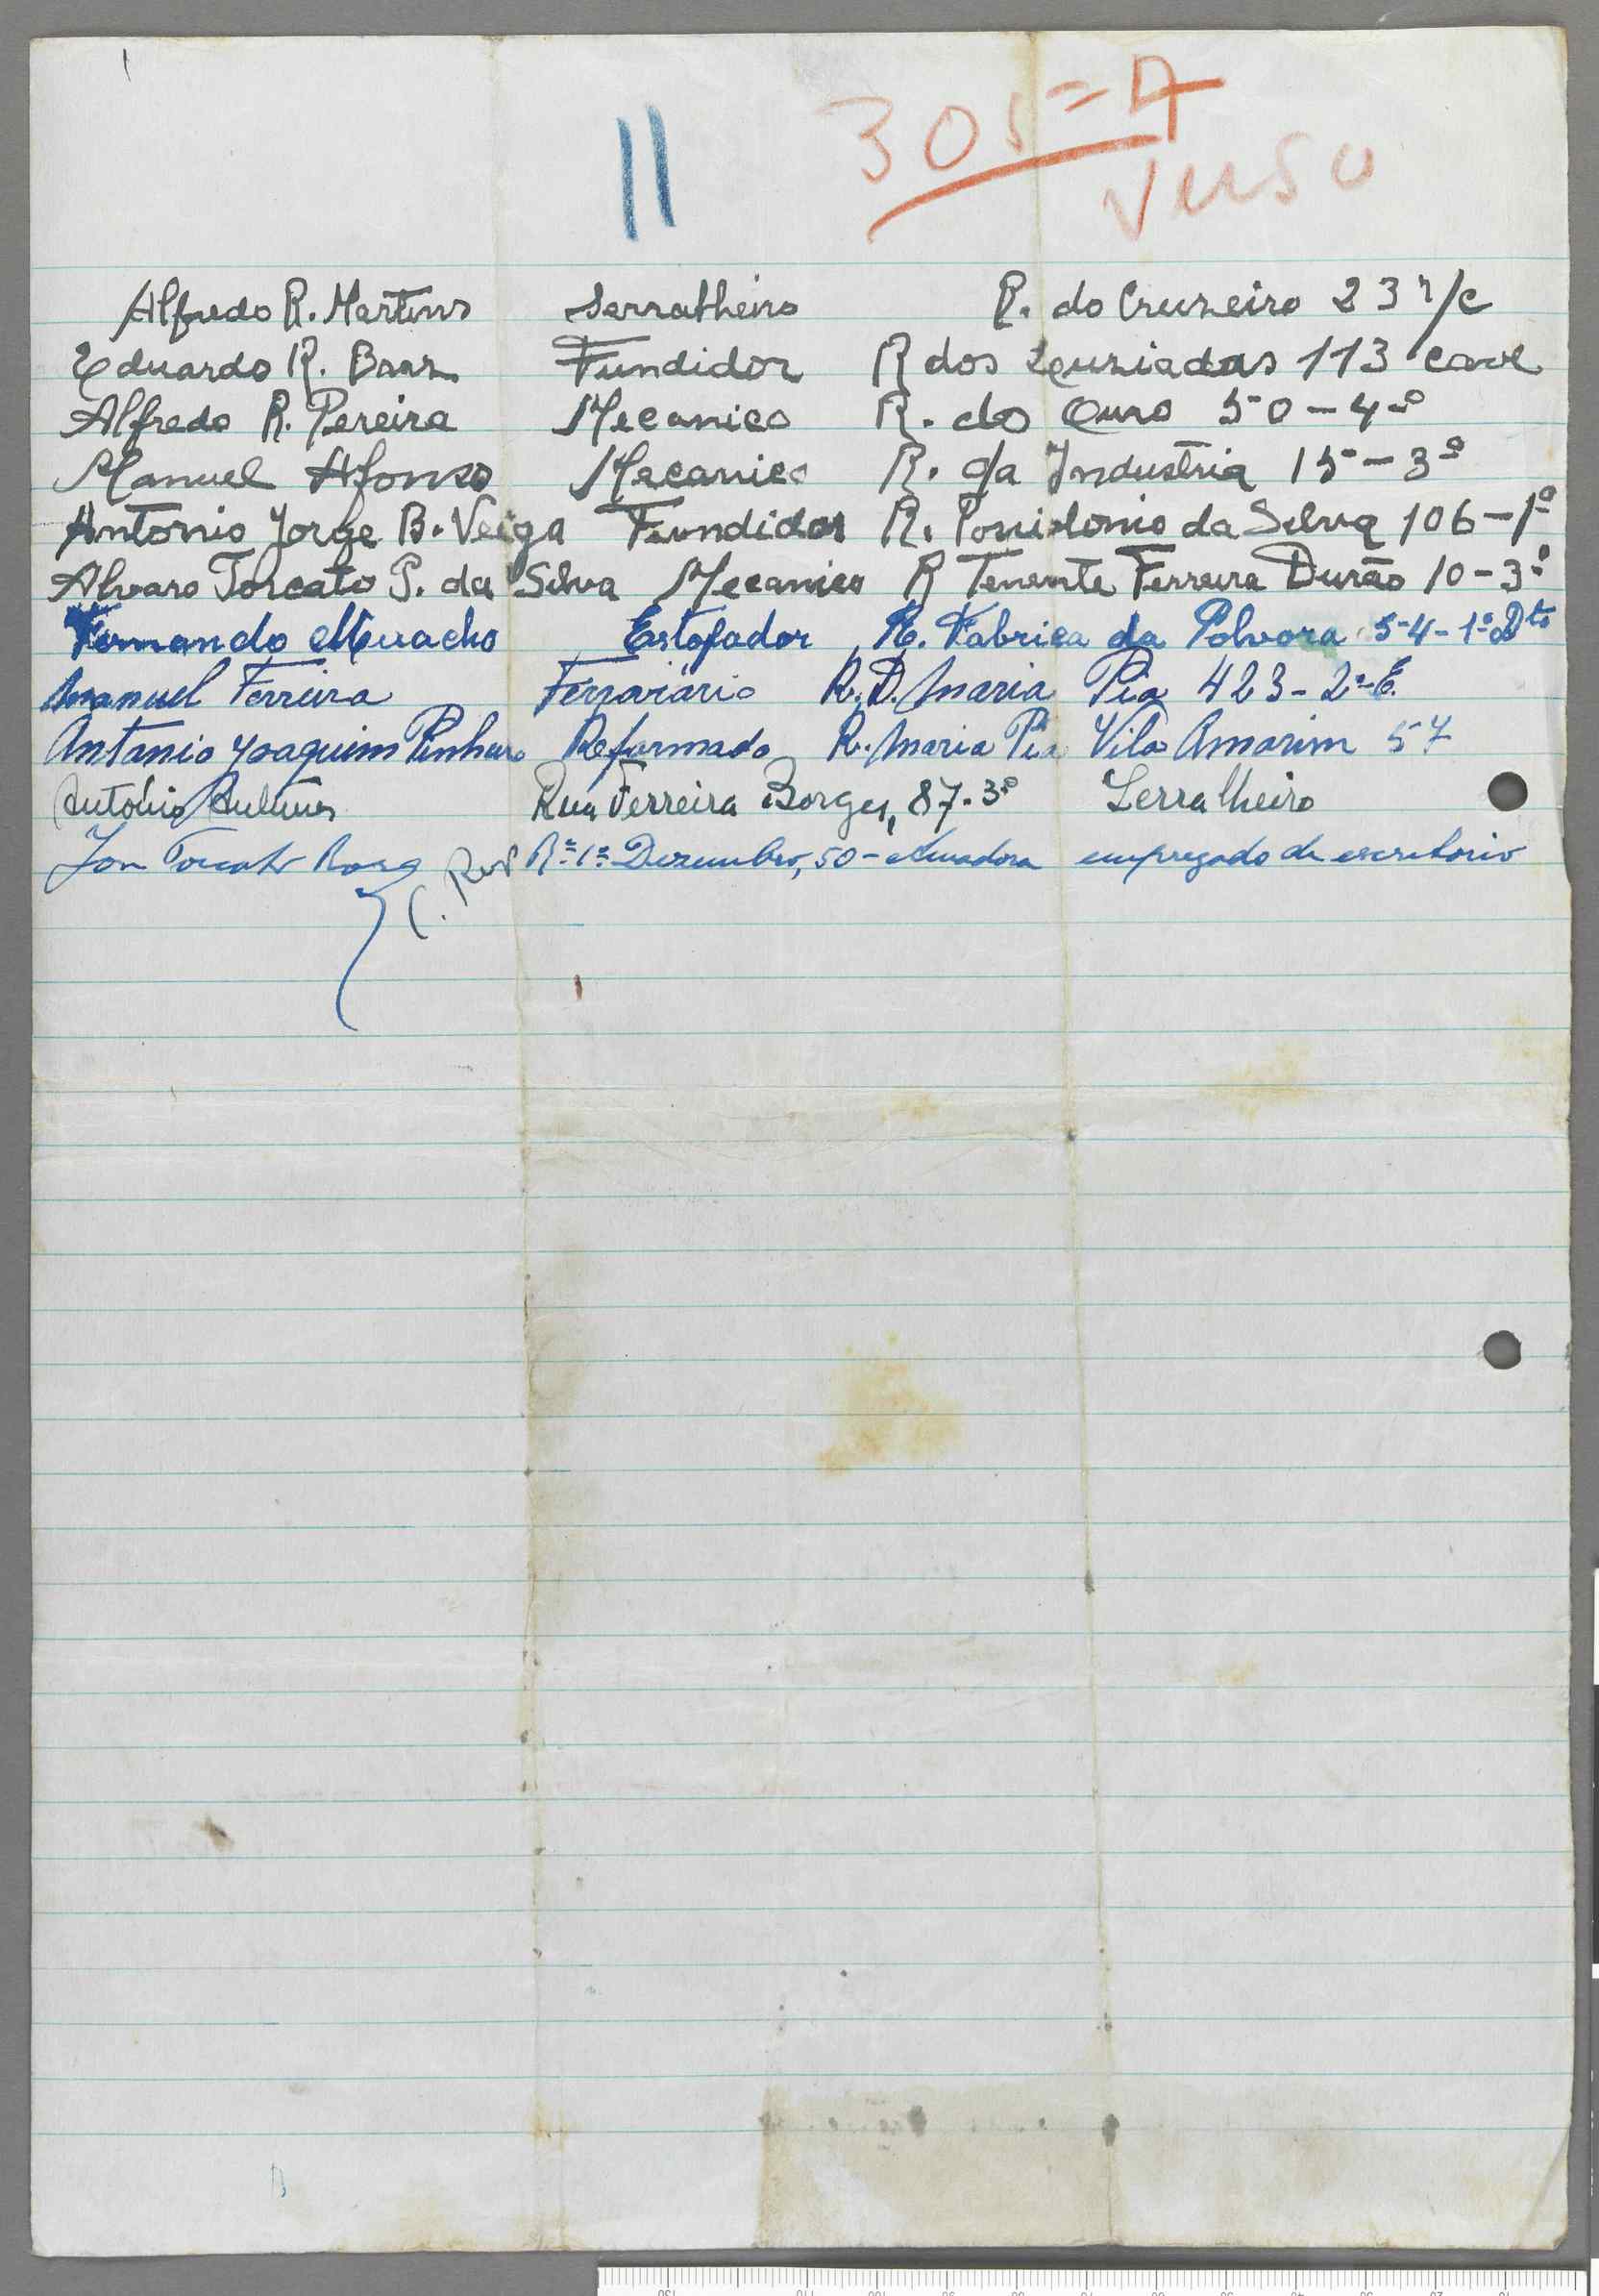 11 305=A
verso
Alfredo R. Martins Serralheiro R. do Cruzeiro 23 r/c
Eduardo R. Braz Fundidor R dos Luziadas 113 cave
Alfredo R. Pereira Mecanico R. do Ouro 50-4º
Manuel Afonso Mecanico R. da Industria 15-3º
Antonio Jorge B. Veiga Fundidor R. Posidonio da Silva 106-1º
Alvaro Torcato P. da Silva Mecanico R Tenente Ferreira Durão 10-3º
Fernando Muacho Estofador R. Fabrica da Polvora 54-1º Dto
Manuel Ferreira Ferroviário R. D. Maria Pia 423-2º-E.
Antonio Joaquim Pinheiro Reformado R. Maria Pia Vila Amorim 57
António Antunes Rua Ferreira Borges, 87-3º Serralheiro
Torcato Rª 1º Dezembro, 50-Amadora empregado de escritorio